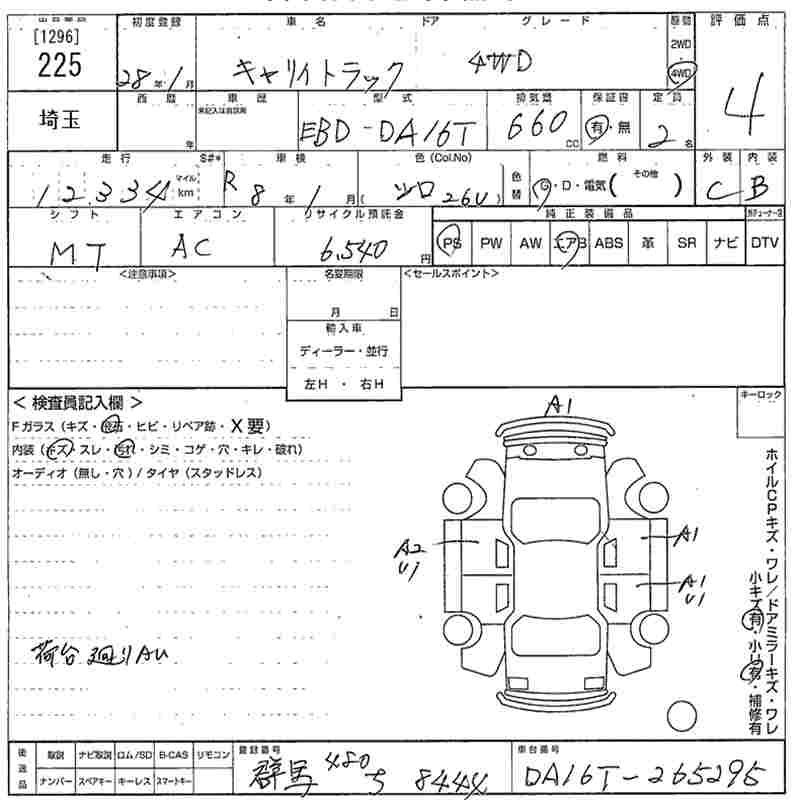 出品番号 初度登録 車名 ドア グレード 駆動 評価点
[1296]
225
28年1月 キャリイトラック 4WD
2WD
4WD
4
埼玉
西暦 車歴 型式 排気量 保証書 定員
未記入は自家用
年 EBD-DA16T 660cc 有・無 2名
走行 S#* 車検 色(Col.No) 燃料 外装 内装
12,334 マイル km R8年1月 (ツロ 26U) 色替 G・D・電気(その他) C B
シフト エアコン リサイクル預託金 純正装備品
MT AC 6,540円 PS PW AW エアB ABS 革 SR ナビ DTV
<注意事項> 名変期限 <セールスポイント>
月 日
輸入車
ディーラー・並行
左H・右H
<検査員記入欄> キーロック
Fガラス(キズ・飛石・ヒビ・リペア跡・X要)
内装(キズ・スレ・汚れ・シミ・コゲ・穴・キレ・破れ)
オーディオ(無し・穴)/タイヤ(スタッドレス)
A1
A2
U1
A1
A1
U1
ホイルCPキズ・ワレ/ドアミラーキズ・ワレ
小キズ有・小U有・補修有
荷台廻りAU
後送品 取説 ナビ取説 ロム/SD B-CAS リモコン 登録番号 車台番号
ナンバー スペアキー キーレス スマートキー 群馬 480 ち 8444 DA16T-265295